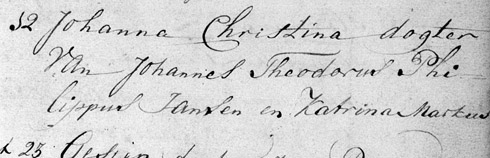 12 Johanna Christina dogter
Van Johannes Theodorus Phi-
lippus Jansen en Katrina Markus
23